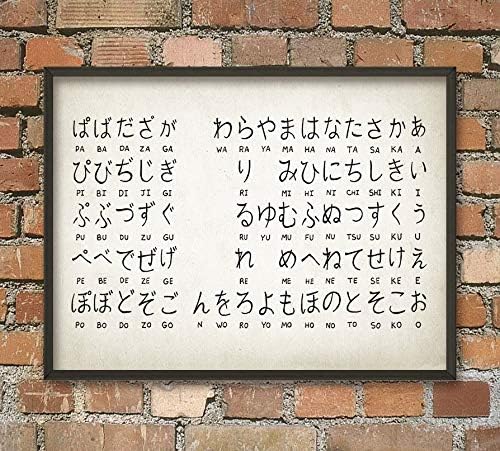 ぱばだざが わらやまはなたさかあ
PA BA DA ZA GA WA RA YA MA HA NA TA SA KA A
ぴびぢじぎ り みひにちしきい
PI BI DI JI GI RI MI HI NI CHI SHI KI I
ぷぶづずぐ るゆむふぬつすくう
PU BU DU ZU GU RU YU MU FU NU TSU SU KU U
ぺべでぜげ れ めへねてせけえ
PE BE DE ZE GE RE ME HE NE TE SE KE E
ぽぼどぞご んをろよもほのとそこお
PO BO DO ZO GO N WO RO YO MO HO NO TO SO KO O